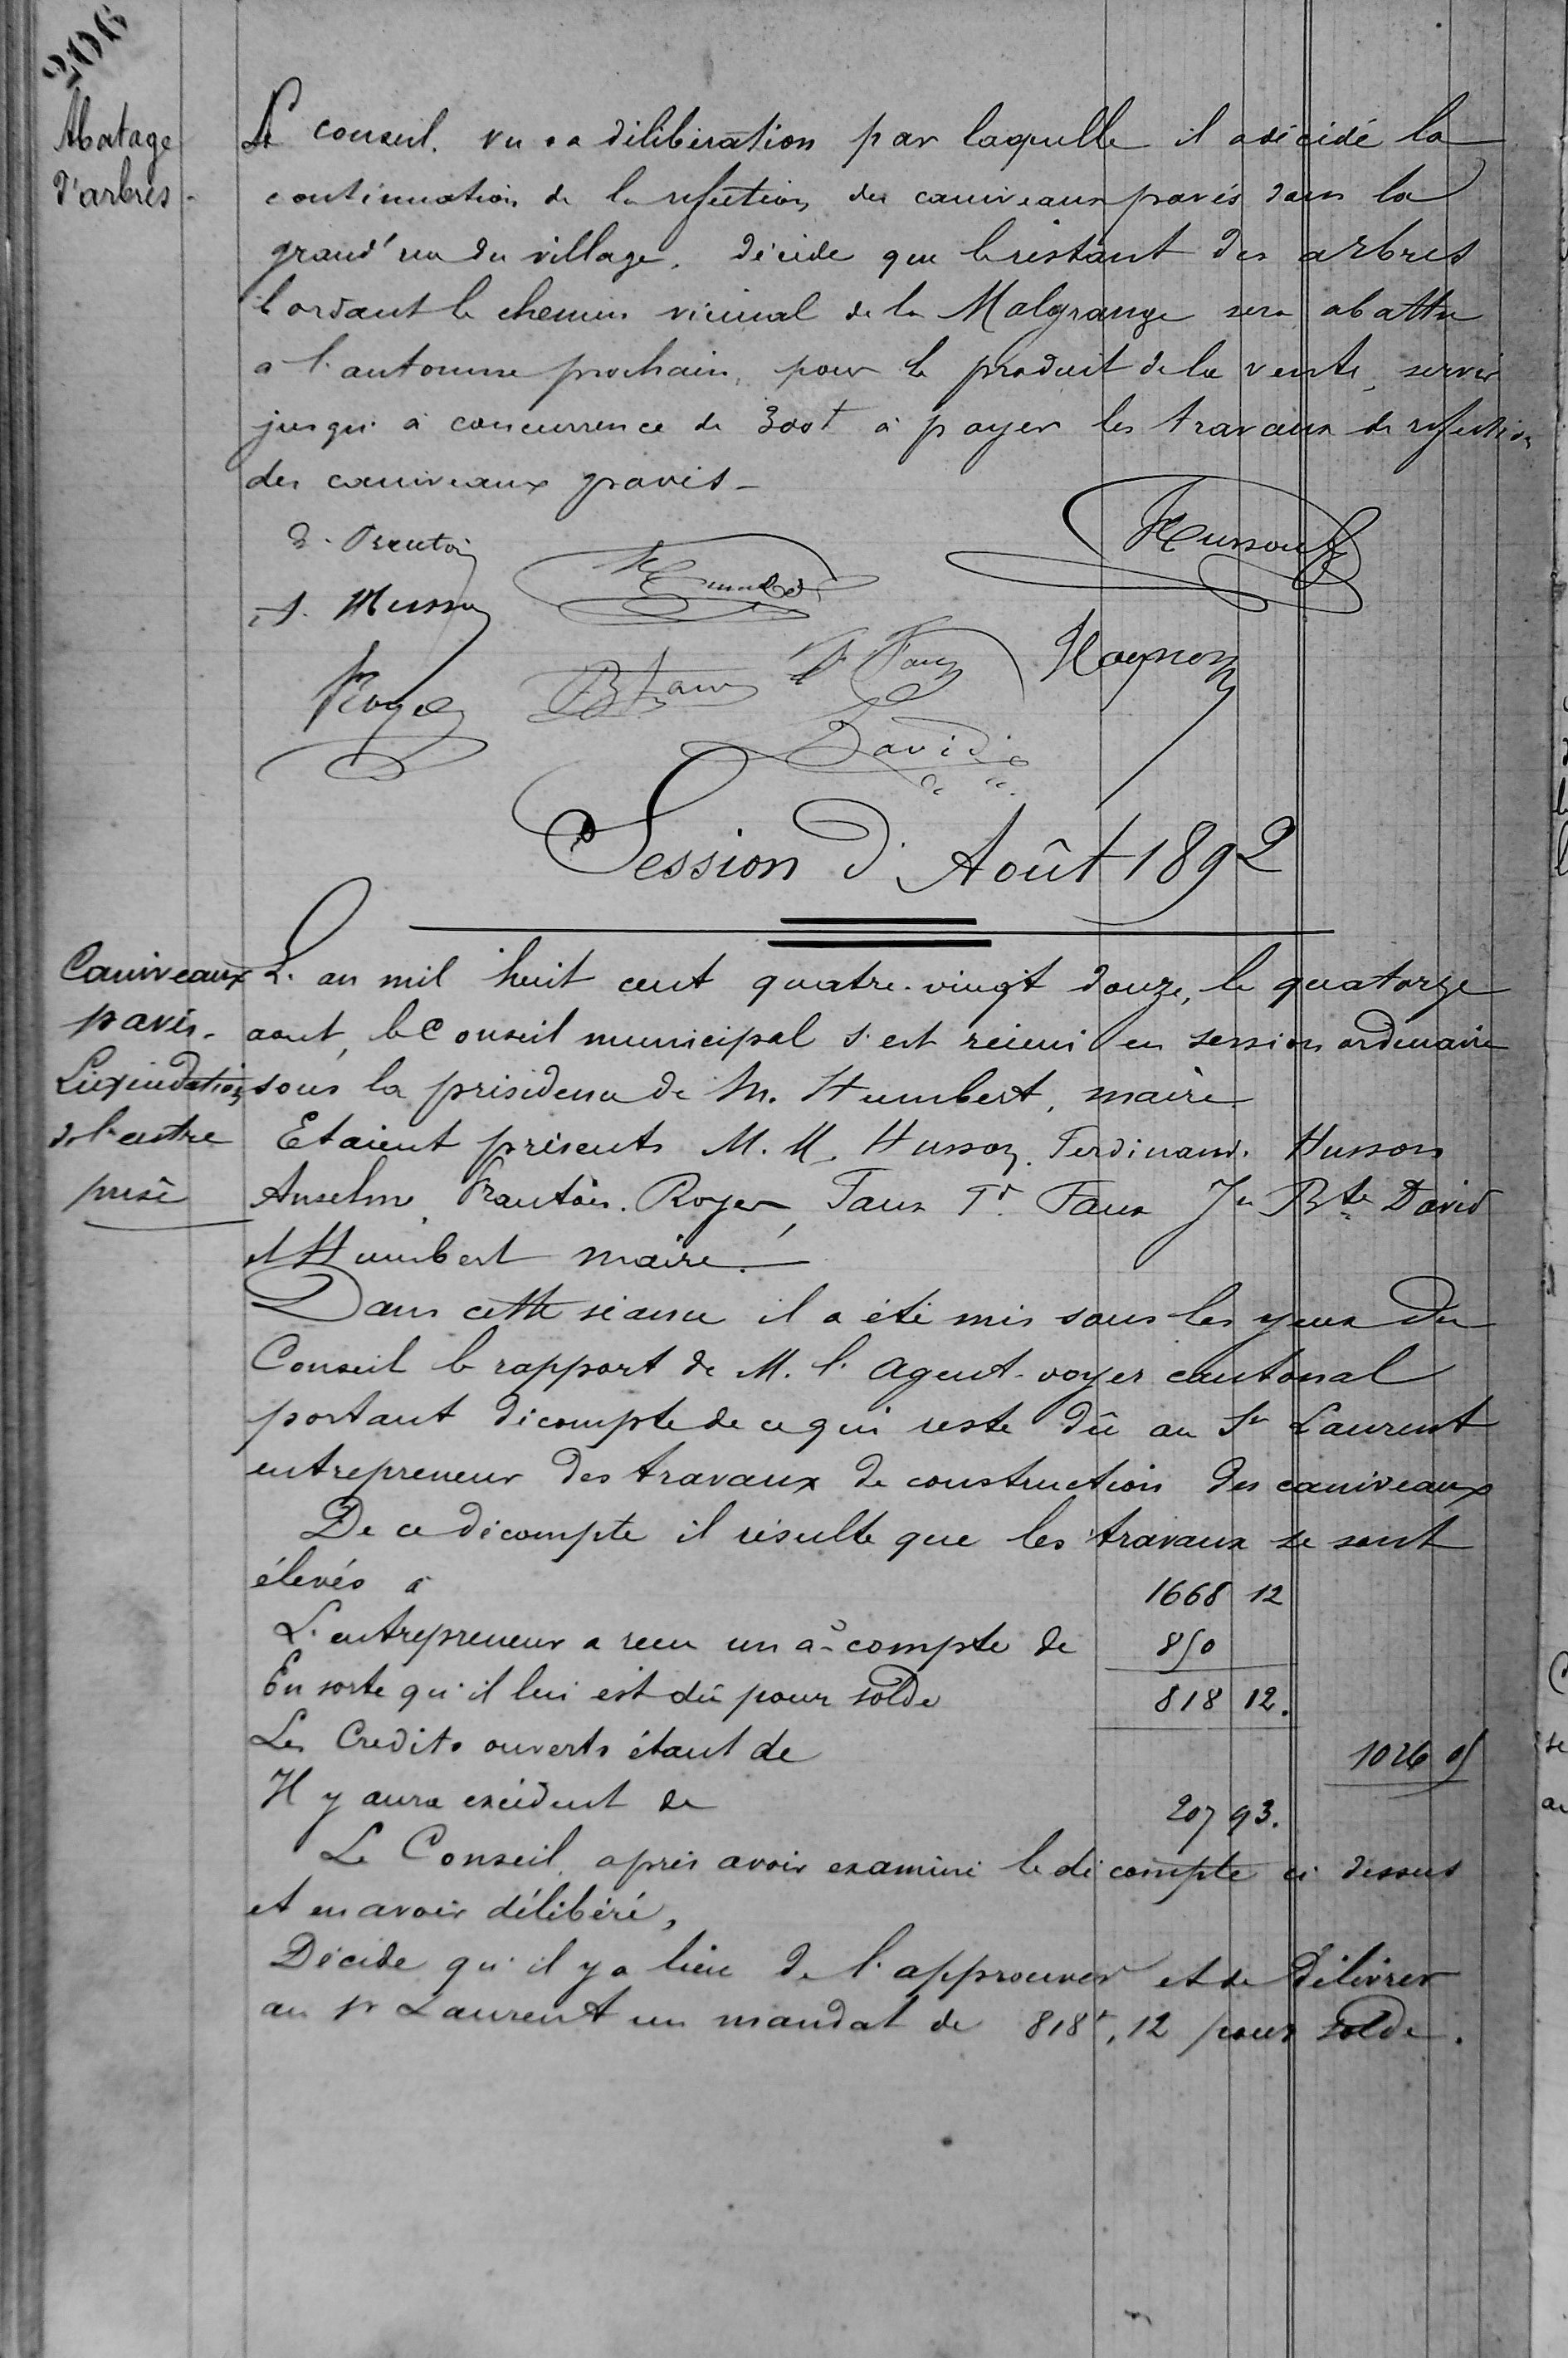 206
Abatage
d'arbres.
Le conseil, vu sa délibération par laquelle il a décidé la
continuation de la refection des caniveaux pavés dans la
grand'rue du village, décide que le restant des arbres
bordant le chemin vicinal de la Malgrange sera abattu
a l'automne prochain, pour le produit de la vente, servir
jusqu'à concurrence de 300f à payer les travaux de refection
des caniveaux pavés -
Husson F
Humbert
A. Husson
Royer
Bte Faux
Faux
David
Session d'Août 1892
Caniveaux
pavés.
Liquidation
de l'entre
prise
L'an mil huit cent quatre-vingt douze, le quatorze
aout, le Conseil municipal s'est réuni en session ordinaire
sous la présidence de M. Humbert, maire.
Etaient présents M.M. Husson Ferdinand. Husson
Anselme, Trantoin. Royer, Faux Td. Faux Jn Bte David
et Humbert maire. -
Dans cette séance il a été mis sous les yeux du
Conseil le rapport de M. l'Agent-voyer cantonal
portant décompte de ce qui reste dû au Sr Laurent
entrepreneur des travaux de construction des caniveaux
De ce décompte il résulte que les travaux se sont
élevés à 1668 12
L'entrepreneur a recu un à-compte de 850
En sorte qu'il lui est dû pour solde 818 12.
Les Credits ouverts étant de 1026 05
Il y aura excédent de 207 93.
Le Conseil, après avoir examiné le décompte ci dessus
et en avoir délibéré,
Décide qu'il y a lieu de l'approuver et de délivrer
au Sr Laurent un mandat de 818f,12 pour solde.